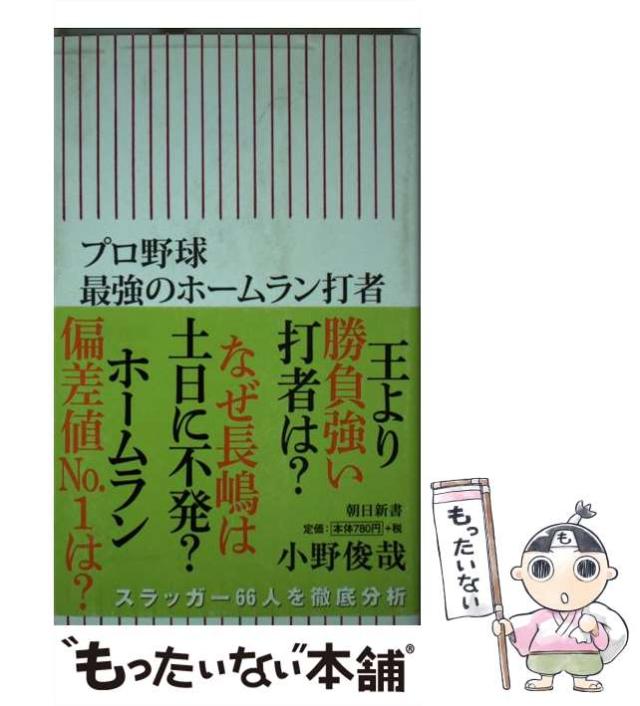 プロ野球
最強のホームラン打者
王より
勝負強い
打者は?
なぜ長嶋は
土日に不発?
ホームラン
偏差値No.1は?
朝日新書
定価:本体780円+税
小野俊哉
スラッガー66人を徹底分析
“もったいない”本舗®
も
もったいない